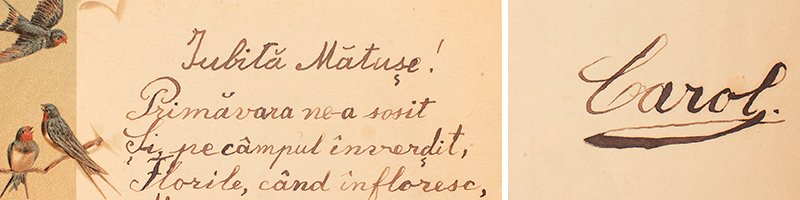 Iubită Mătușe!
Primăvara ne-a sosit
Și, pe câmpul înverdit,
Florile, când înfloresc,
Carol.